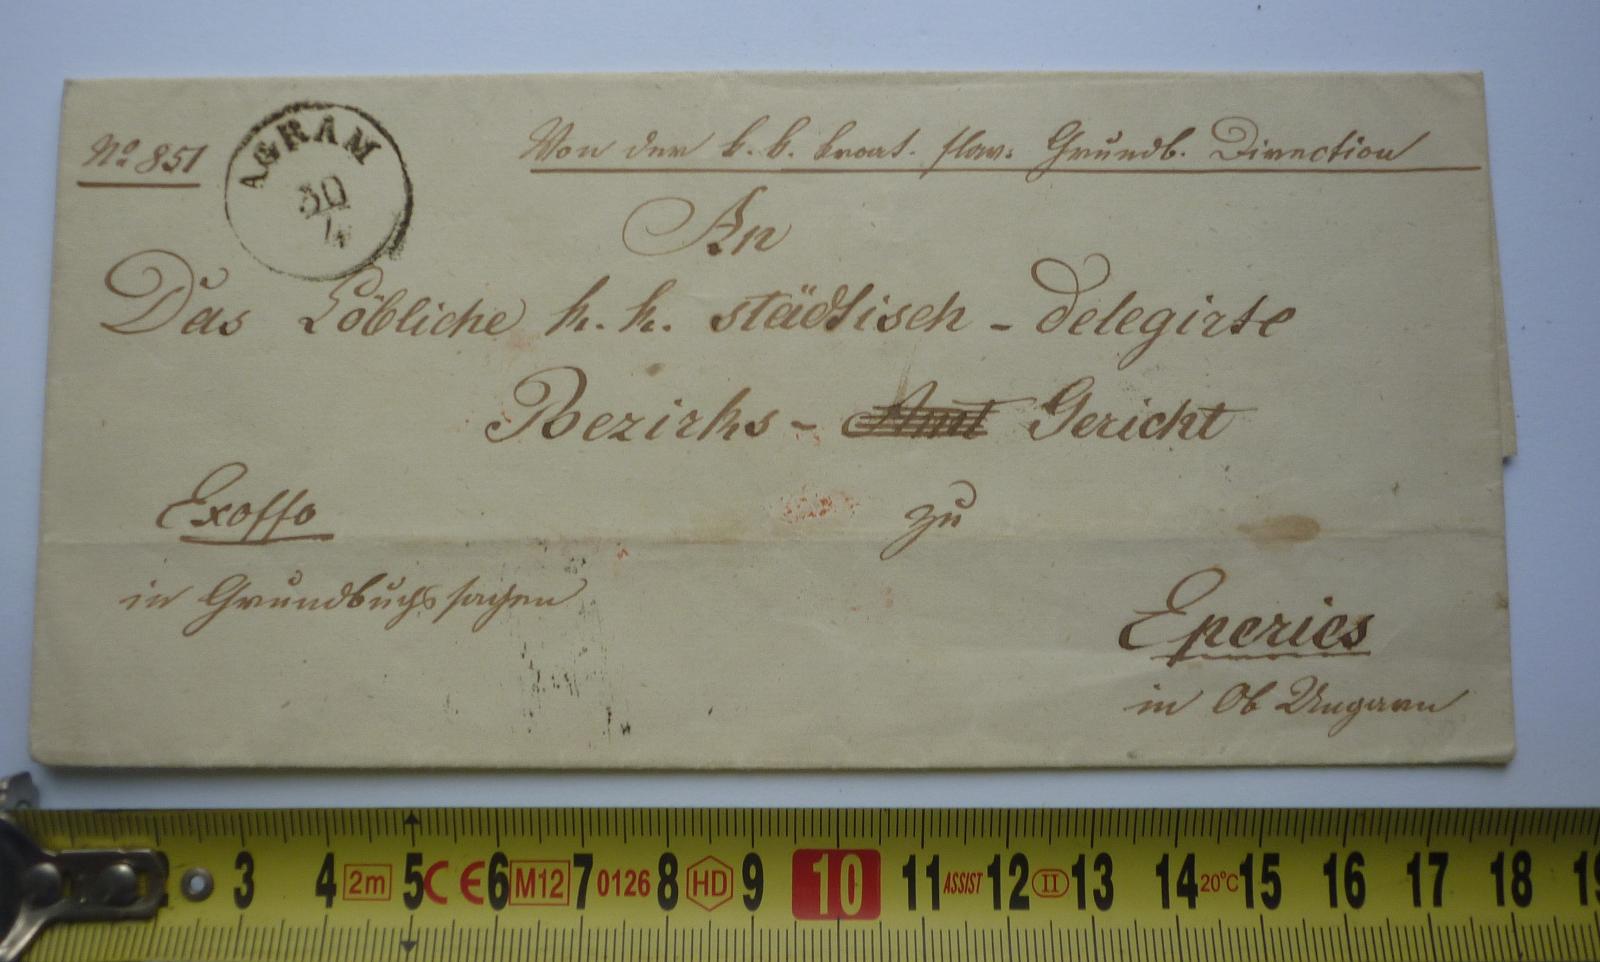 No 851
AGRAM
30
4
Von der k. k. kroat. slav: Grundb. Direction
An
Das Löbliche k. k. städtisch - delegirte
Bezirks - Amt Gericht
Exoffo
zu
in Grundbuchssachen
Eperies
in Ob Ungarn
3 4 2m 5 CE 6 M12 7 0126 8 HD 9 10 11 ASSIST 12 II 13 14 20°C 15 16 17 18 19